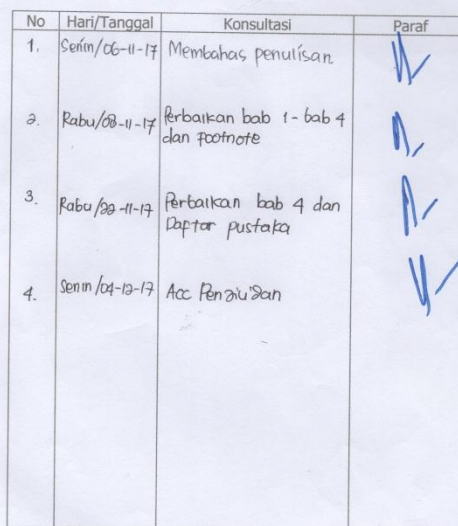 No Hari/Tanggal Konsultasi Paraf
1. Senin/06-11-17 Membahas penulisan
2. Rabu/08-11-17 Perbaikan bab 1-bab 4
dan Footnote
3. Rabu/22-11-17 Perbaikan bab 4 dan
Daptar pustaka
4. Senin/04-12-17 Acc